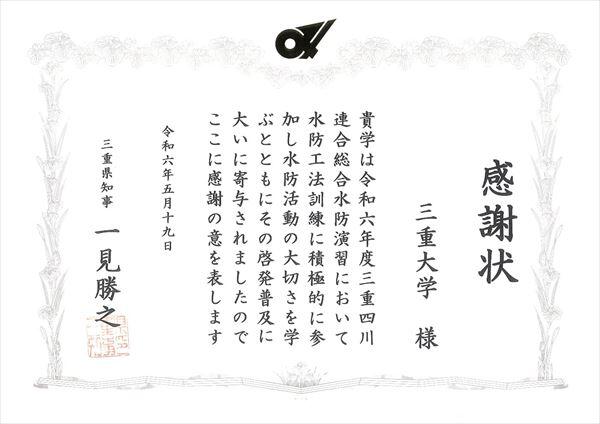 感謝状
三重大学 様
貴学は令和六年度三重四川
連合総合水防演習において
水防工法訓練に積極的に参
加し水防活動の大切さを学
ぶとともにその啓発普及に
大いに寄与されましたので
ここに感謝の意を表します
令和六年五月十九日
三重県知事 一見勝之